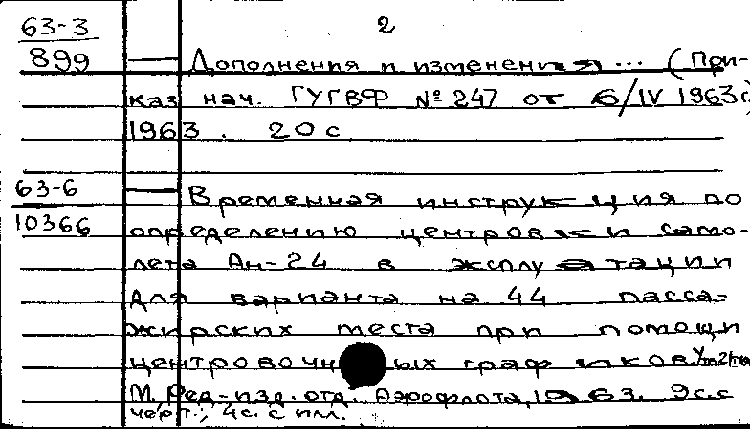 63-3
899
2
— Дополнения и изменения ... (При-
каз нач. ГУГВФ № 247 от 6/IV 1963г)
1963. 20с
63-6
10366
— Временная инструкция по
определению центровки само-
лета Ан-24 в эксплуатации
для варианта на 44 пасса-
жирских места при помощи
центровочных графиков
М. Ред-изд. отд. Аэрофлота, 1963. 9с. с
черт.; 4с. с илл.